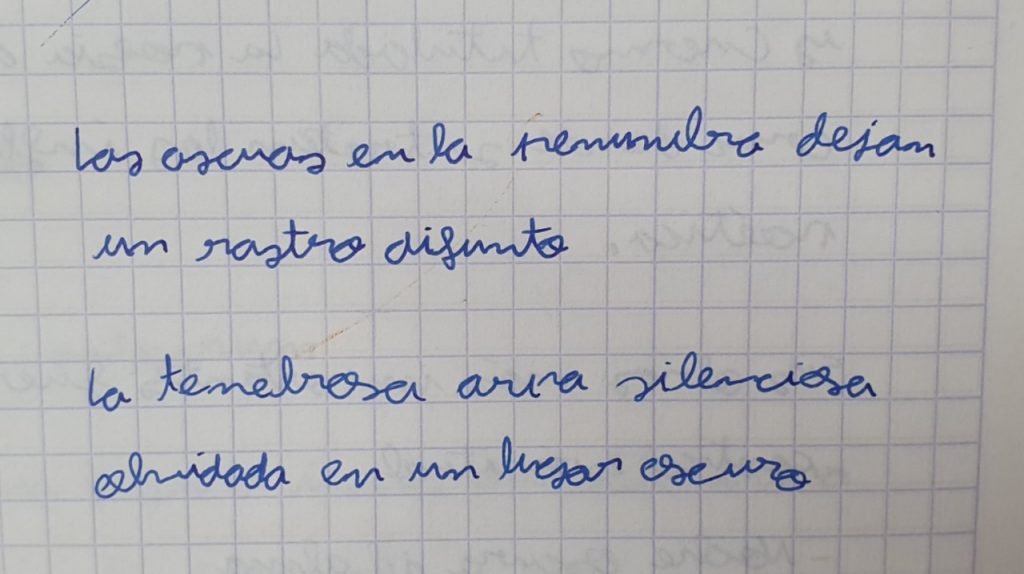 Las ascuas en la penumbra dejan
un rastro difunto
La tenebrosa arpa silenciosa
olvidada en un lugar oscuro